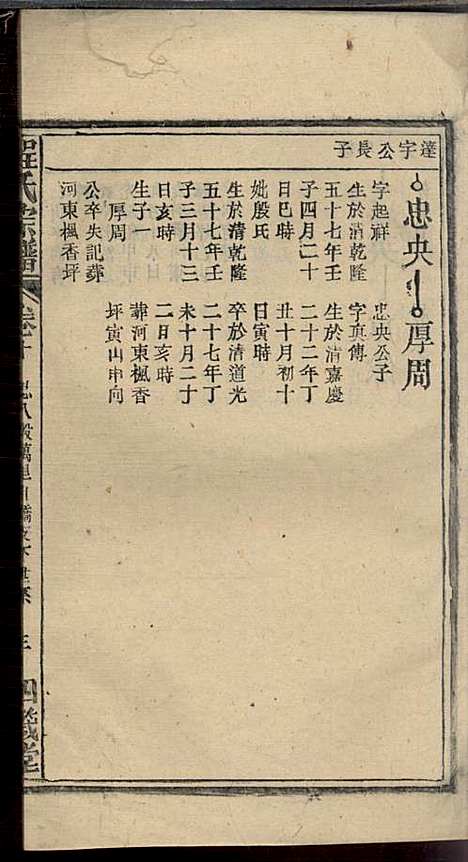 達字公長子
忠央
厚周
字起祥
生於清乾隆
五十七年壬
子四月二十
日巳時
妣殷氏
生於清乾隆
五十七年壬
子三月十三
日亥時
生子一
厚周
公卒失記葬
河東楓香坪
忠央公子
字真傳
生於清嘉慶
二十二年丁
丑十月初十
日寅時
卒於清道光
二十七年丁
未十月二十
二日亥時
葬河東楓香
坪寅山申向
程氏宗譜
三
四箴堂